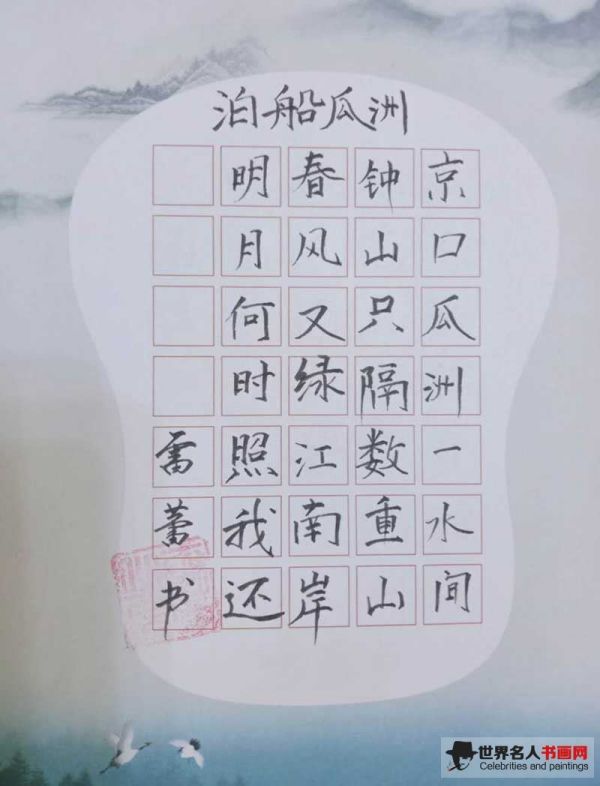 泊船瓜洲
京口瓜洲一水间
钟山只隔数重山
春风又绿江南岸
明月何时照我还
雷蕾书
世界名人书画网
Celebrities and paintings